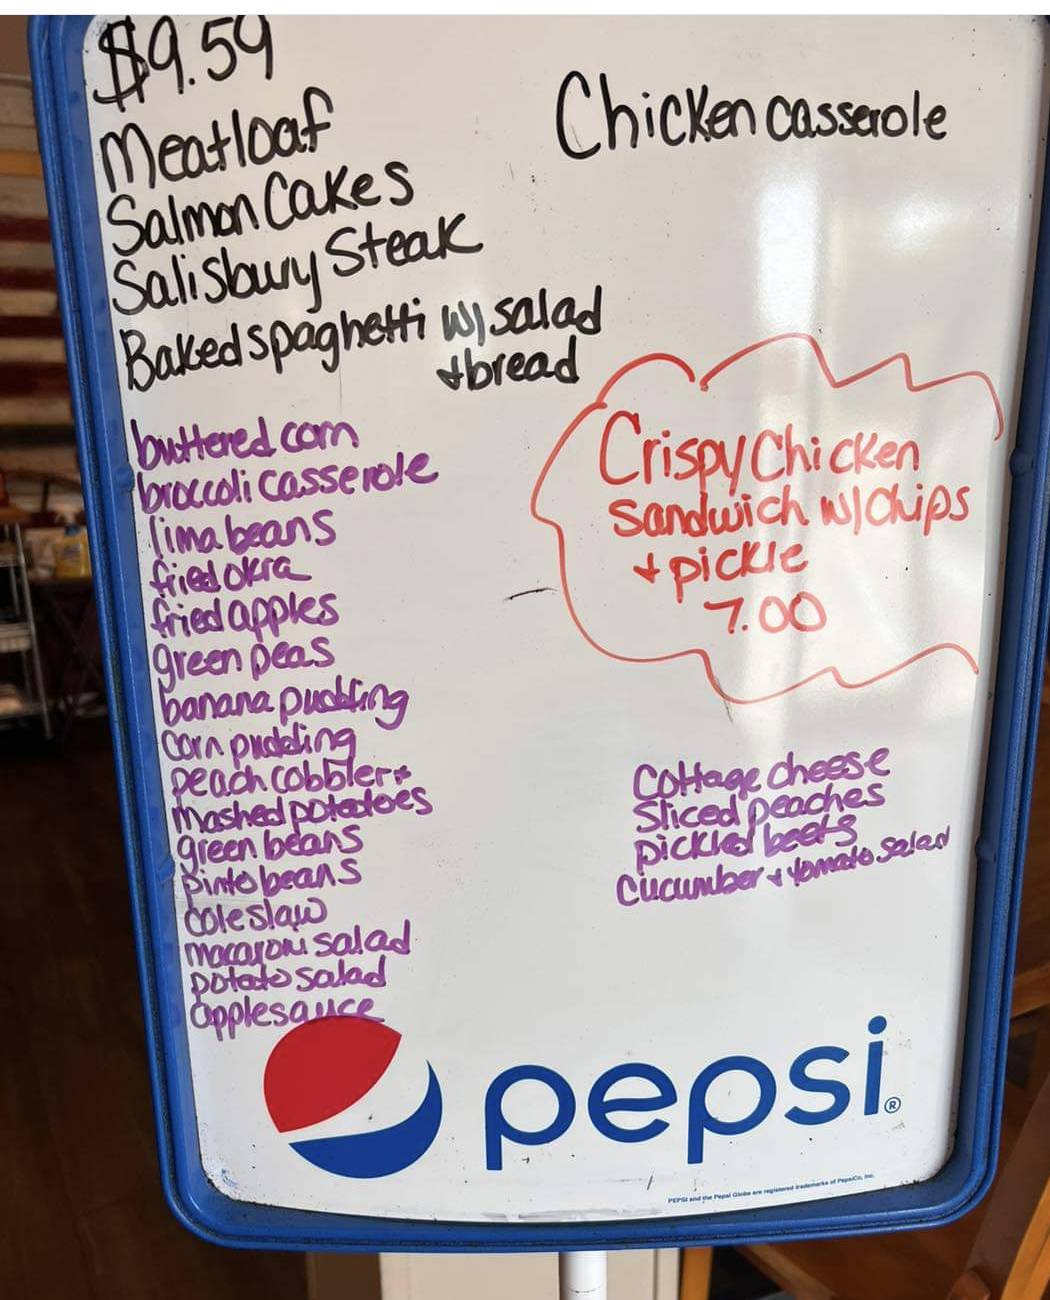 $9.59
Meatloaf
Salmon Cakes
Salisbury Steak
Baked spaghetti w/ salad
+ bread
Chicken casserole
buttered corn
broccoli casserole
lima beans
fried okra
fried apples
green peas
banana pudding
corn pudding
peach cobbler *
mashed potatoes
green beans
pinto beans
coleslaw
macaroni salad
potato salad
applesauce
Crispy Chicken
Sandwich w/ Chips
+ pickle
7.00
Cottage cheese
Sliced peaches
pickled beets
Cucumber + tomato salad
pepsi®
PEPSI and the Pepsi Globe are registered trademarks of PepsiCo, Inc.